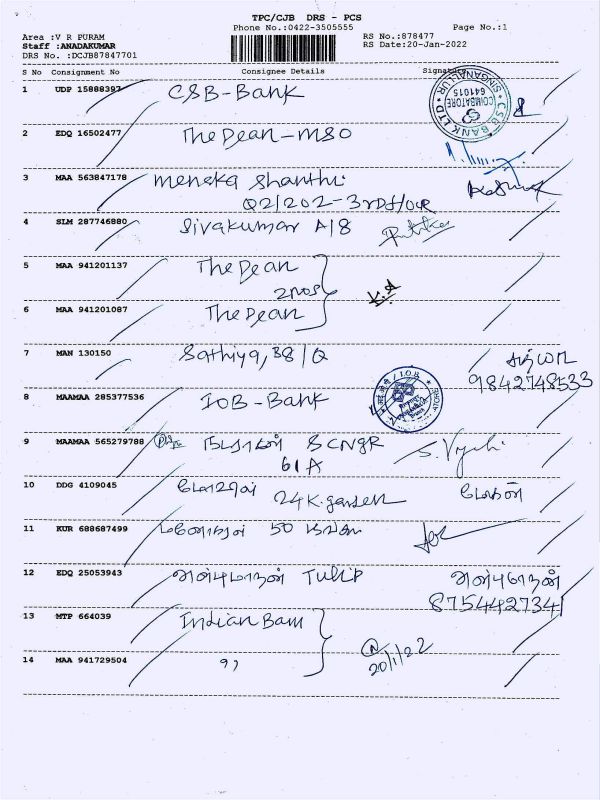 TPC/CJB DRS - PCS
Phone No.:0422-3505555
Page No.:1
Area :V R PURAM
Staff :ANADAKUMAR
DRS No. :DCJB87847701
RS No.:878477
RS Date:20-Jan-2022
S No Consignment No Consignee Details Signature
1 UDP 15888397 CSB-Bank
CSB BANK LTD SINGANALLUR COIMBATORE 641015
2 EDQ 16502477 The Dean-MSO
3 MAA 563847178 Menaka Shanthi
Q2/202-3rd floor
4 SLM 287746880 Sivakumar A/8
5 MAA 941201137 The Dean
2nos
6 MAA 941201087 The Dean
7 MAN 130150 Sathiya, B8/Q
9842748533
8 MAAMAA 285377536 IOB-Bank
I.O.B
9 MAAMAA 565279788 நடராஜன் SCNGR
61A
10 DDG 4109045 24 K.garden
11 KUR 688687499 50
12 EDQ 25053943 Tulip
8754427341
13 MTP 664039 Indian Bam
20/1/22
14 MAA 941729504 "